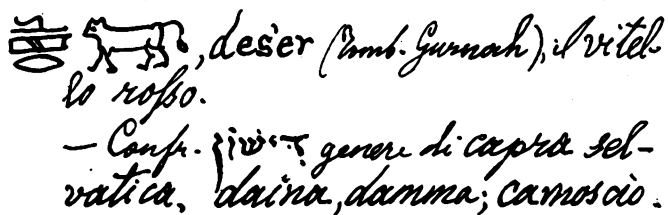 , deśer (Tomb. Gurnah), il vitel-
lo rosso.
— Confr. genere di capra sel-
vatica, daina, damma; camoscio.